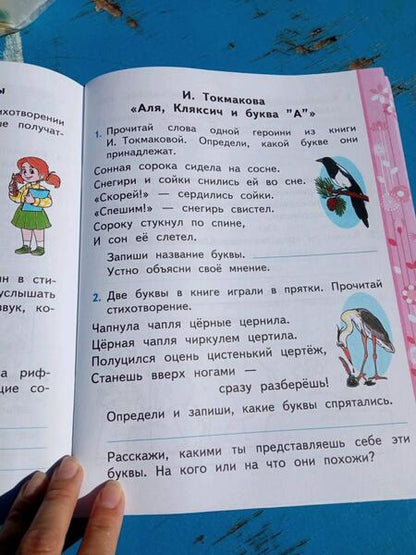 ы
хотворении
ие получат-
ин в сти-
услышать
звук, ко-
а риф-
щие со-
И. Токмакова
«Аля, Кляксич и буква "А"»
1. Прочитай слова одной героини из книги
И. Токмаковой. Определи, какой букве они
принадлежат.
Сонная сорока сидела на сосне.
Снегири и сойки снились ей во сне.
«Скорей!» — сердились сойки.
«Спешим!» — снегирь свистел.
Сороку стукнул по спине,
И сон её слетел.
Запиши название буквы.
Устно объясни своё мнение.
2. Две буквы в книге играли в прятки. Прочитай
стихотворение.
Чапнула чапля цёрные цернила.
Цёрная чапля чиркулем цертила.
Полуцился оцень цистенький цертёж,
Станешь вверх ногами —
сразу разберёшь!
Определи и запиши, какие буквы спрятались.
Расскажи, какими ты представляешь себе эти
буквы. На кого или на что они похожи?